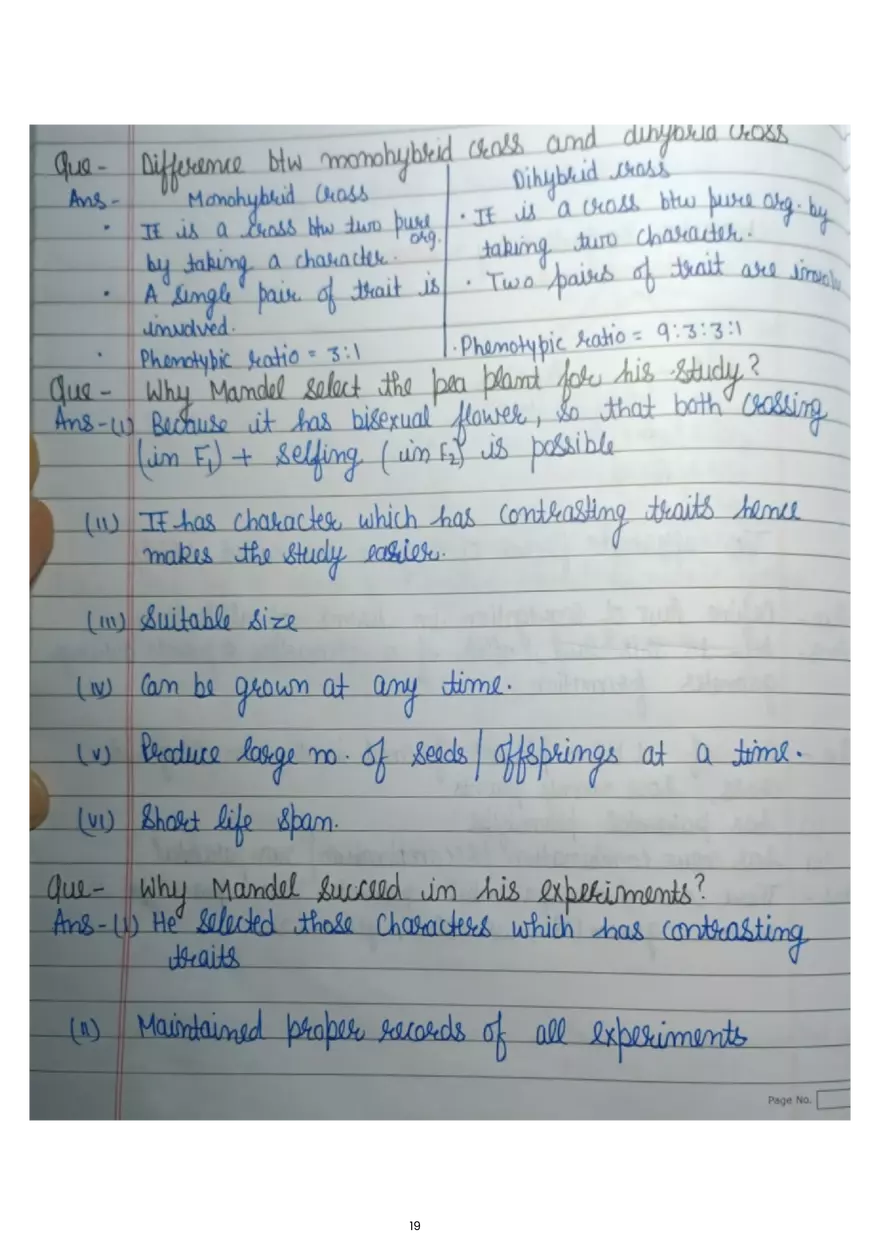 Que - Difference btw monohybrid cross and dihybrid cross
Ans - Monohybrid Cross
• It is a cross btw two pure org.
by taking a character.
• A single pair of trait is
involved.
• Phenotypic ratio = 3:1
Dihybrid cross
• It is a cross btw pure org. by
taking two character.
• Two pairs of trait are involv
• Phenotypic ratio = 9:3:3:1
Que - Why Mandel select the pea plant for his study?
Ans - (i) Because it has bisexual flower, so that both crossing
(in F1) + selfing (in F2) is possible
(ii) It has character which has contrasting traits hence
makes the study easier.
(iii) Suitable size
(iv) Can be grown at any time.
(v) Produce large no. of seeds/offsprings at a time.
(vi) Short life span.
Que - Why Mandel succeed in his experiments?
Ans - (i) He selected those characters which has contrasting
traits
(ii) Maintained proper records of all experiments
Page No.
19